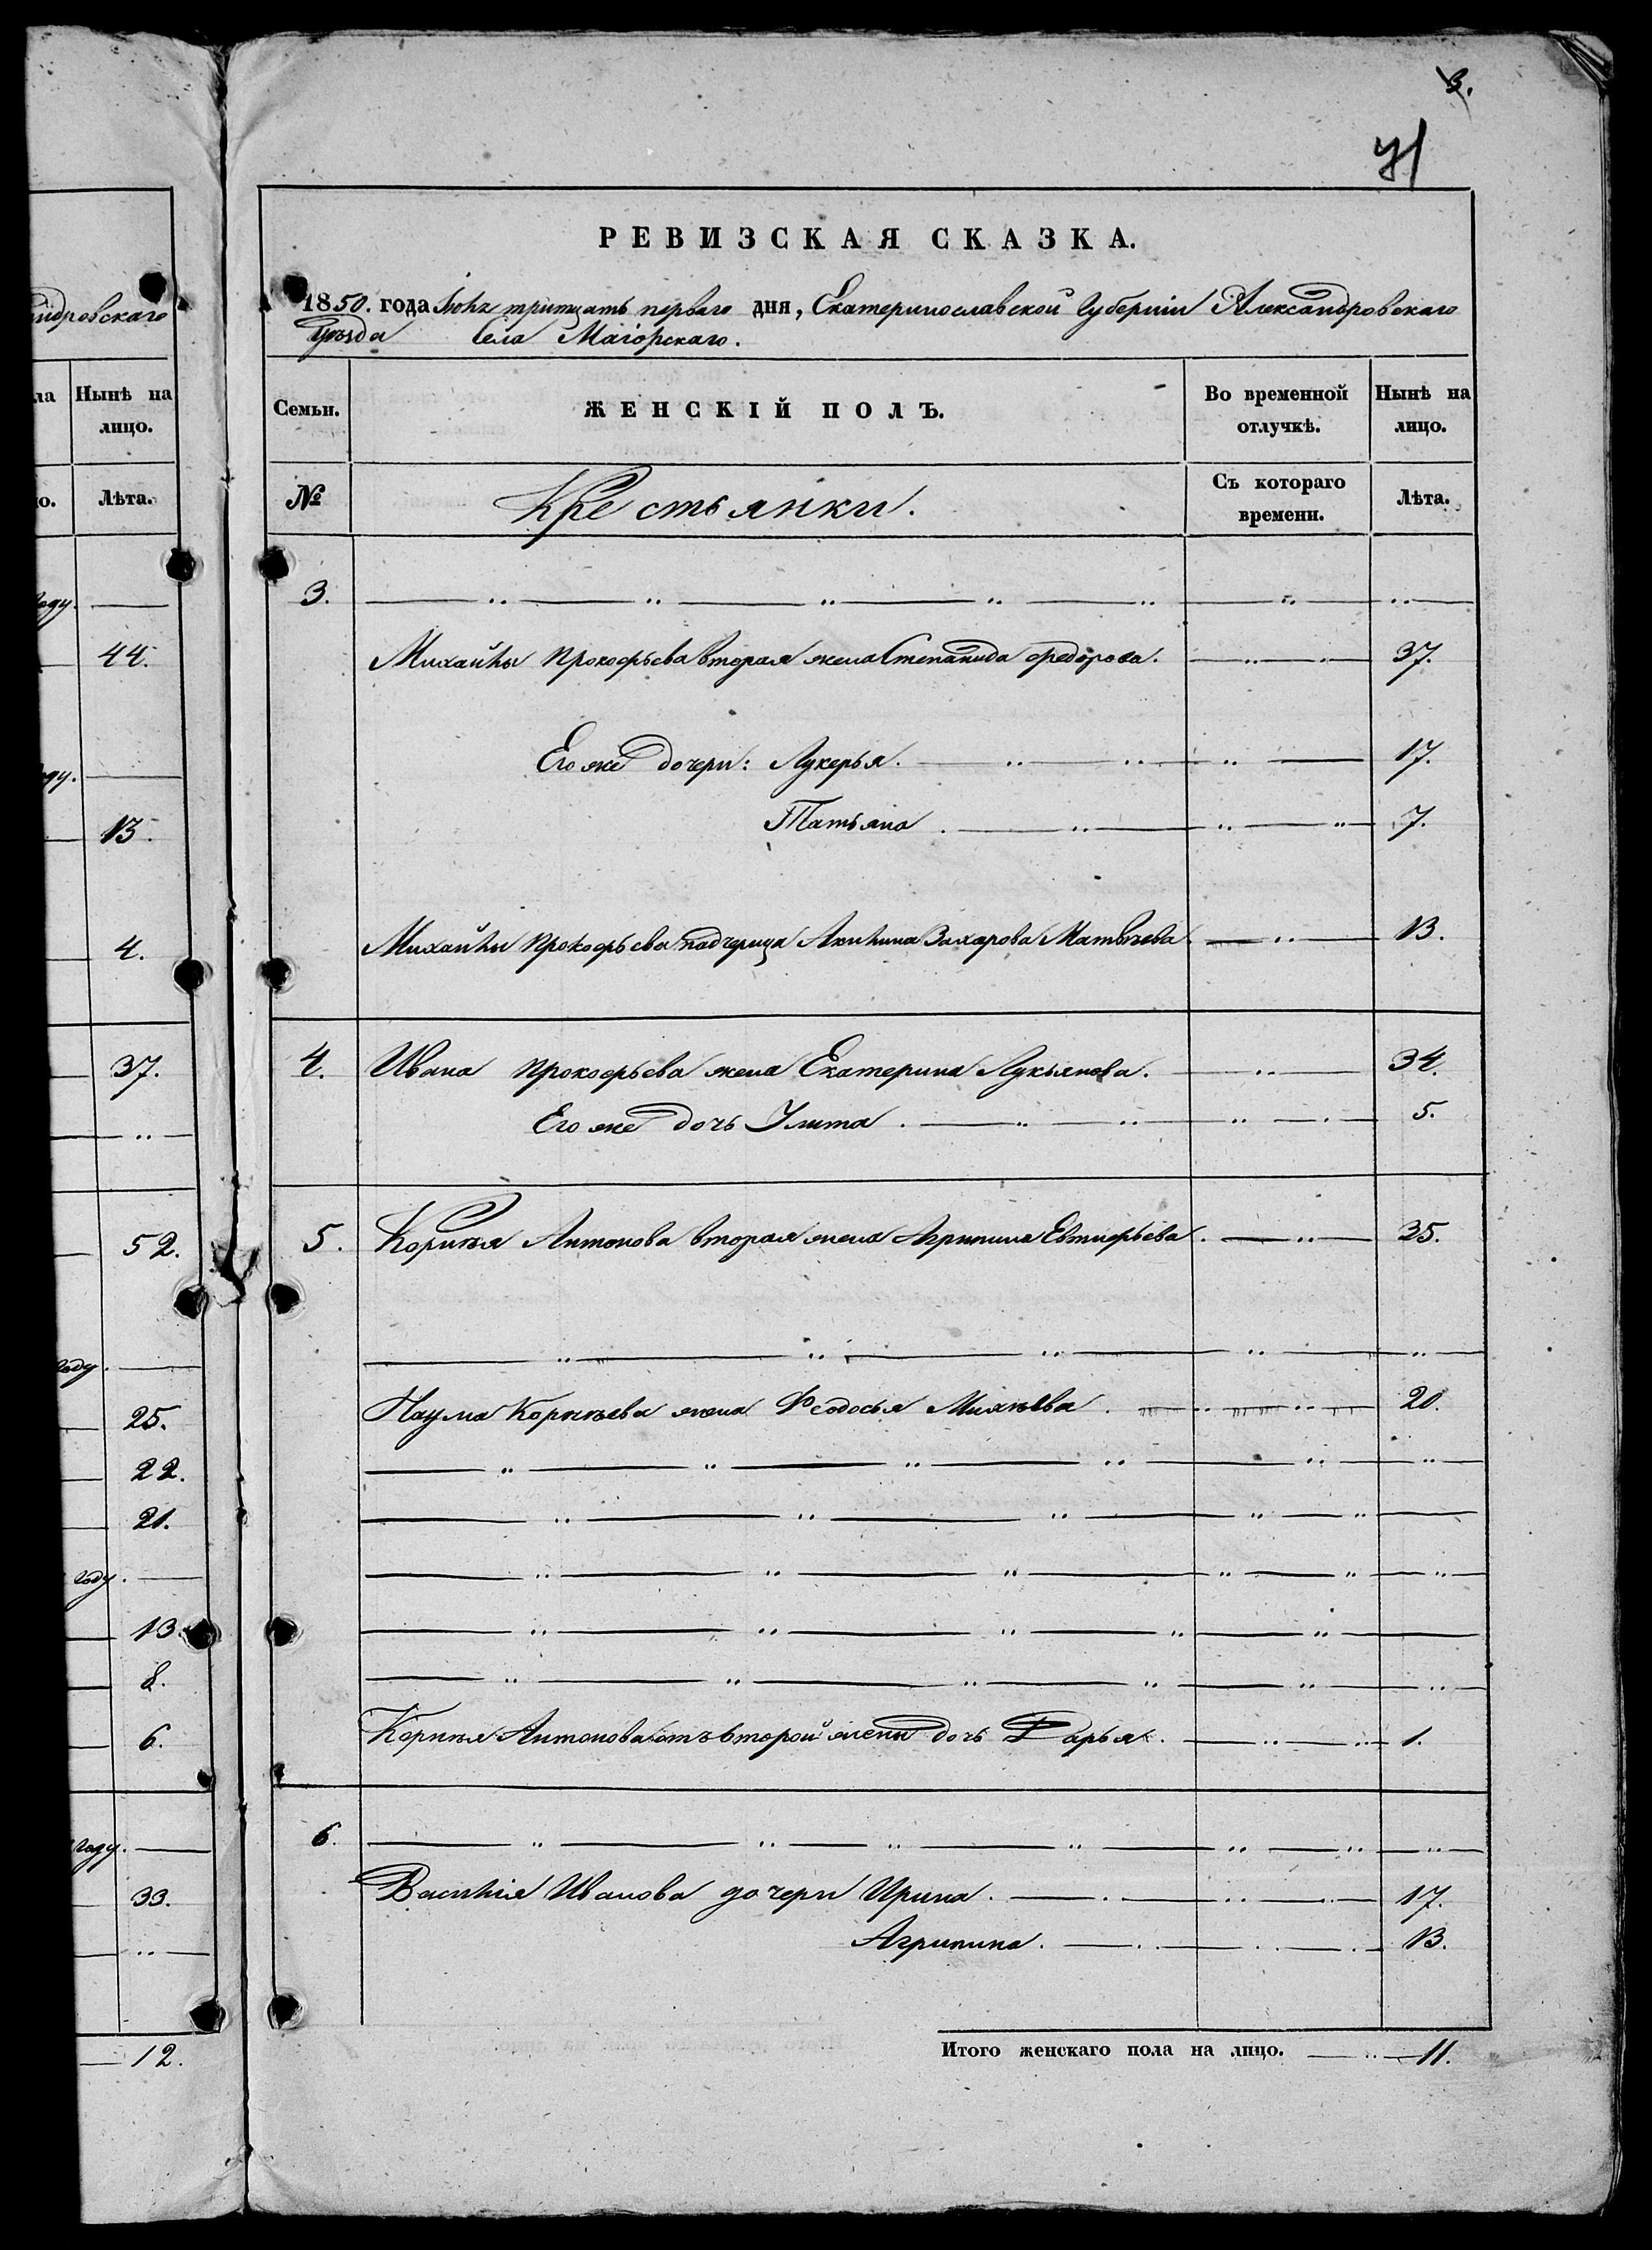 3.
41
РЕВИЗСКАЯ СКАЗКА.
1850. года Іюля тритцать перваго дня, Екатеринославской Губерніи Александровскаго
Уѣзда Села Маіорскаго.
Семьи.
ЖЕНСКІЙ ПОЛЪ.
Во временной отлучкѣ.
Нынѣ на лицо.
№
Крестьянки.
Съ котораго времени.
Лѣта.
3.
Михайлы Прокофьева вторая жена Степанида Федорова. 37.
Его же дочери: Лукерья. 17.
Татьяна. 7.
Михайлы Прокофьева падчерица Акилина Захарова Матвѣева 13.
4. Ивана Прокофьева жена Екатерина Лукьянова. 34.
Его же дочь Улита. 5.
5. Корнѣя Антонова вторая жена Агрипина Евтифьева. 35.
Наума Корнѣева жена Феодосья 20.
Корнѣя Антонова отъ второй жены дочь Дарья. 1.
6.
Василія Иванова дочери Ирина. 17.
Агрипина. 13.
Итого женскаго пола на лицо. 11.
ндровскаго
ла
Нынѣ на лицо.
Лѣта.
году.
44.
году.
13.
4.
37.
52.
году.
25.
22.
21.
году.
13.
8.
6.
году.
33.
12.